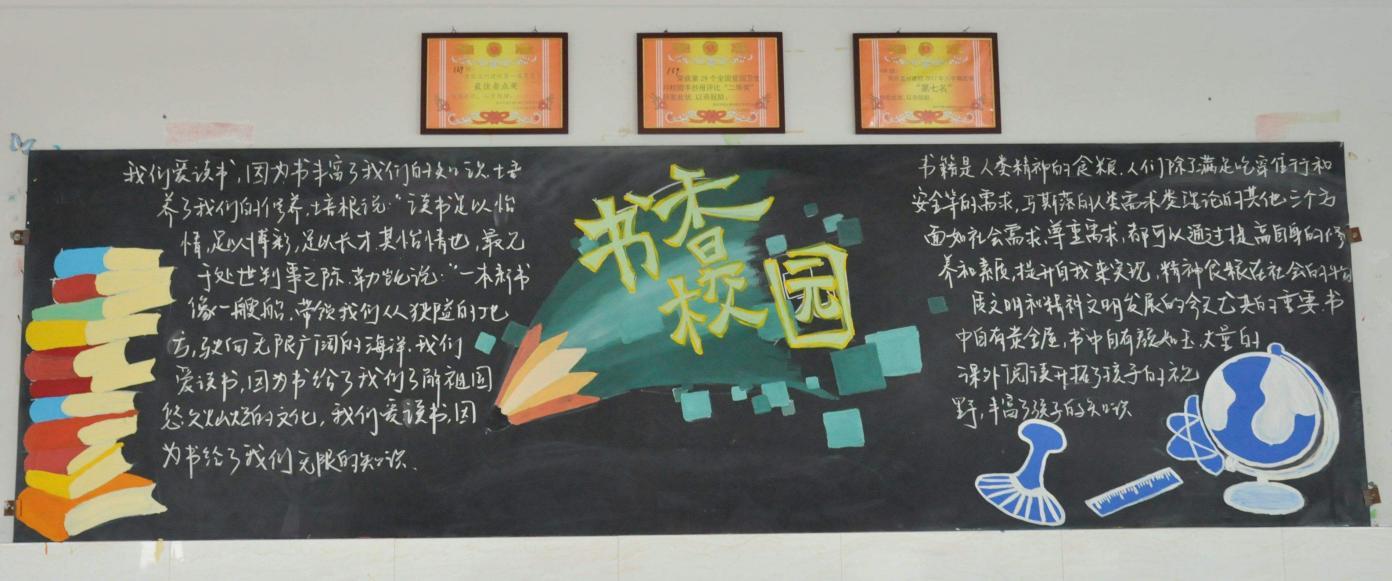 最佳着点奖
荣获第29个全国爱国卫生
月校园手抄报评比“二等奖”
特发此状,以资鼓励。
“第七名”
特发此状,以资鼓励。
书香
校园
我们爱读书,因为书丰富了我们的知识,培
养了我们的修养,培根说:“读书足以怡
情,足以博彩,足以长才,其怡情也,最见
于处世判事之际,勒凯说:“一本新书
像一艘船,带领我们从狭隘的地
方,驶向无限广阔的海洋,我们
爱读书,因为书给了我们了解祖国
悠久灿烂的文化,我们爱读书,因
为书给了我们无限的知识.
书籍是人类精神的食粮,人们除了满足吃穿住行和
安全等的需求,马斯洛的人类需求类理论的其他三个方
面如社会需求,尊重需求,都可以通过提高自身的修
养和素质,提升自我来实现,精神食粮在社会的物
质文明和精神文明发展的今天尤其的重要.书
中自有黄金屋,书中自有颜如玉,大量的
课外阅读开拓了孩子的视
野,丰富了孩子的知识